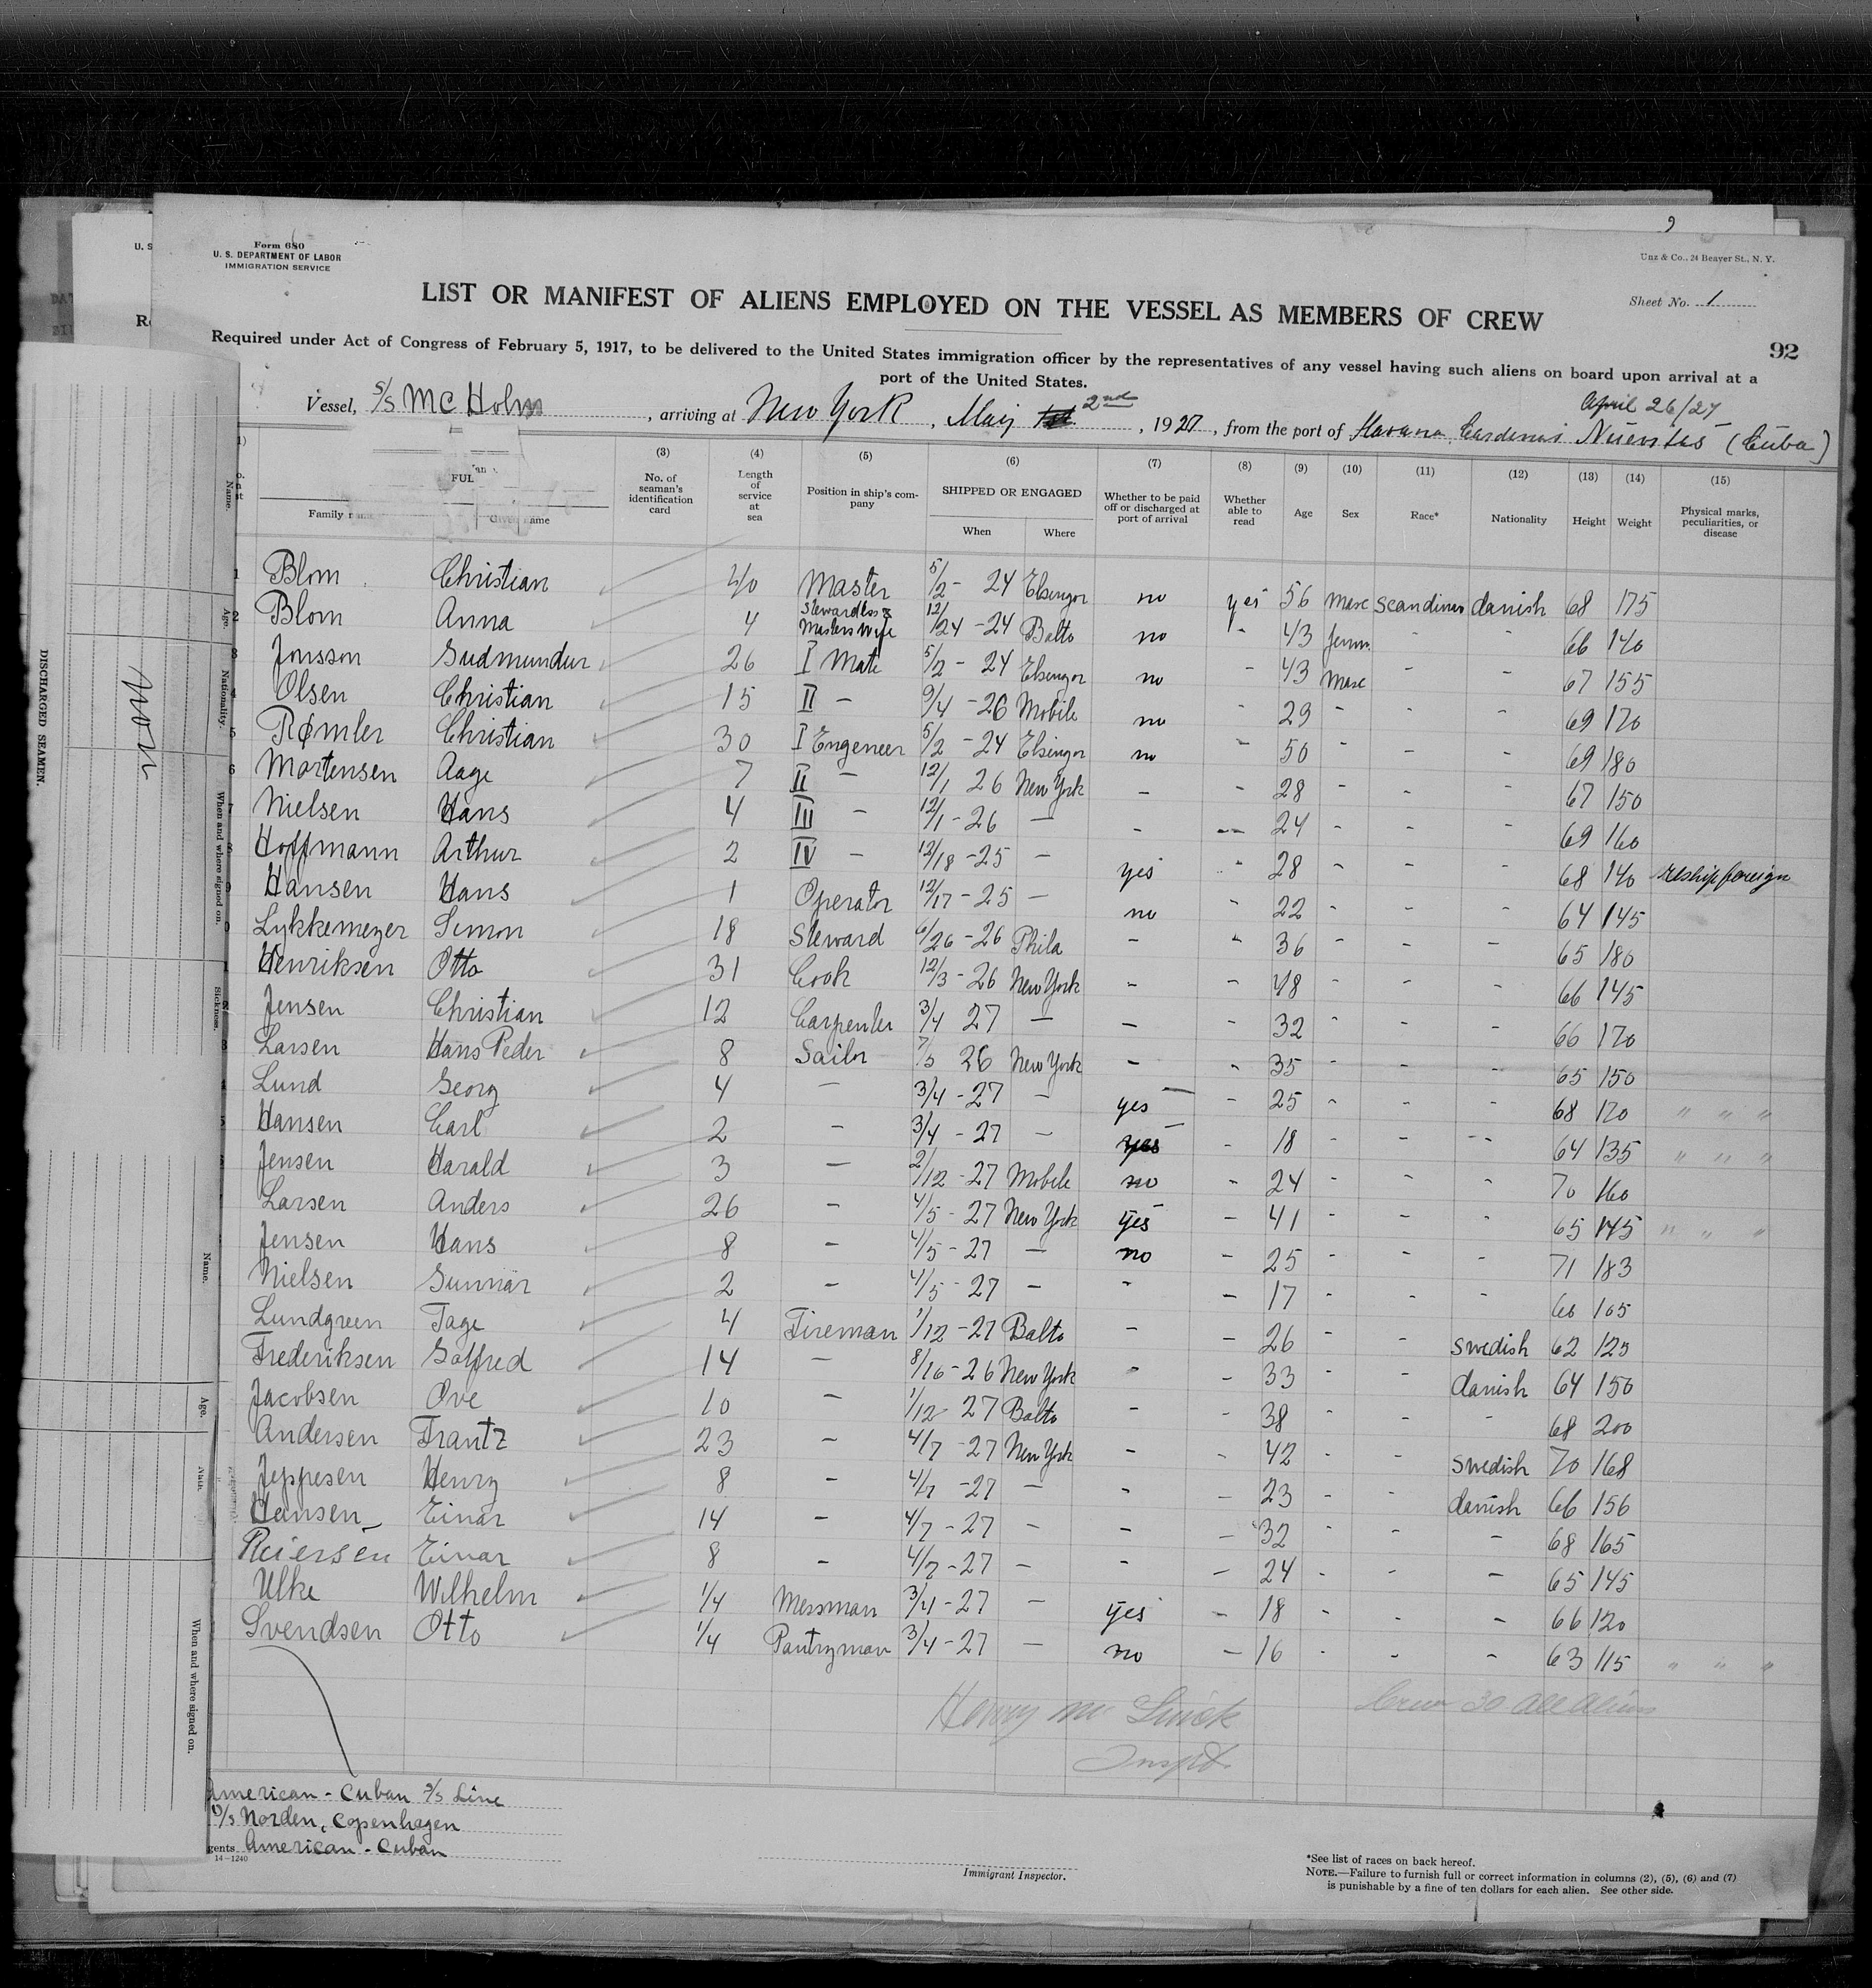 Form 680
U. S. DEPARTMENT OF LABOR
IMMIGRATION SERVICE
Unz & Co., 24 Beaver St., N. Y.
Sheet No. 1
LIST OR MANIFEST OF ALIENS EMPLOYED ON THE VESSEL AS MEMBERS OF CREW
92
Required under Act of Congress of February 5, 1917, to be delivered to the United States immigration officer by the representatives of any vessel having such aliens on board upon arrival at a
port of the United States.
April 26/27
Vessel, S/S Mc Holm, arriving at New York, May 2nd, 1927, from the port of Havana, Cardenas Nuevitas (Cuba)
(3) (4) (5) (6) (7) (8) (9) (10) (11) (12) (13) (14) (15)
FUL
Family name Given name No. of seaman's identification card Length of service at sea Position in ship's company SHIPPED OR ENGAGED When Where Whether to be paid off or discharged at port of arrival Whether able to read Age Sex Race* Nationality Height Weight Physical marks, peculiarities, or disease
1 Blom Christian 40 Master 5/2 - 24 Elsingor no yes 56 Masc Scandinav danish 68 175
2 Blom Anna 4 Stewardess & Masters Wife 12/24 - 24 Balto no " 43 Femm. - - 66 140
3 Jonsson Gudmundur 26 I Mate 5/2 - 24 Elsingor no - 43 Masc - - 67 155
4 Olsen Christian 15 II - 9/4 - 26 Mobile no - 29 - - - 69 170
5 Rømler Christian 30 I Engeneer 5/2 - 24 Elsingor no - 50 - - - 69 180
6 Mortensen Aage 7 II - 12/1 26 New York - - 28 - - - 67 150
7 Nielsen Hans 4 III - 12/1 - 26 - - - 24 - - - 69 160
8 Hoffmann Arthur 2 IV - 12/18 - 25 - yes - 28 - - - 68 140 reship foreign
9 Hansen Hans 1 Operator 12/17 - 25 - no - 22 - - - 64 145
Lykkemeyer Simon 18 Steward 6/26 - 26 Phila - - 36 - - - 65 180
Henriksen Otto 31 Cook 12/3 - 26 New York - - 48 - - - 66 145
Jensen Christian 12 Carpenter 3/4 27 - - - 32 - - - 66 170
Larsen Hans Peder 8 Sailor 7/5 26 New York - - 35 - - - 65 150
Lund Georg 4 - 3/4 - 27 - yes - 25 - - - 68 170 " " "
Hansen Carl 2 - 3/4 - 27 - yes - 18 - - - 64 135 " " "
Jensen Harald 3 - 2/12 - 27 Mobile no - 24 - - - 70 160
Larsen Anders 26 - 4/5 - 27 New York yes - 41 - - - 65 145 " " "
Jensen Hans 8 - 4/5 - 27 - no - 25 - - - 71 183
Nielsen Gunnar 2 - 4/5 - 27 - - - 17 - - - 66 165
Lundgreen Tage 4 Fireman 1/12 - 27 Balto - - 26 - - Swedish 62 125
Frederiksen Gotfred 14 - 8/16 - 26 New York - - 33 - - danish 64 150
Jacobsen Ove 10 - 1/12 - 27 Balto - - 38 - - - 68 200
Andersen Frantz 23 - 4/7 - 27 New York - - 42 - - Swedish 70 168
Jeppesen Henry 8 - 4/7 - 27 - - - 23 - - danish 66 156
Hansen Einar 14 - 4/7 - 27 - - - 32 - - - 68 165
Reiersen Einar 8 - 4/7 - 27 - - - 24 - - - 65 145
Ulke Wilhelm 1/4 Messman 3/4 - 27 - yes - 18 - - - 66 120
Svendsen Otto 1/4 Pantryman 3/4 - 27 - no - 16 - - - 63 115 " " "
Crew 30 all aliens
Inspt.
American - Cuban S/S Line
D/S Norden, Copenhagen
gents American - Cuban
14-1240
Immigrant Inspector.
*See list of races on back hereof.
NOTE.—Failure to furnish full or correct information in columns (2), (5), (6) and (7)
is punishable by a fine of ten dollars for each alien. See other side.
DISCHARGED SEAMEN.
Name.
Age.
Nationality.
When and where signed on.
Sickness.
Name.
Age.
Natn.
When and where signed on.